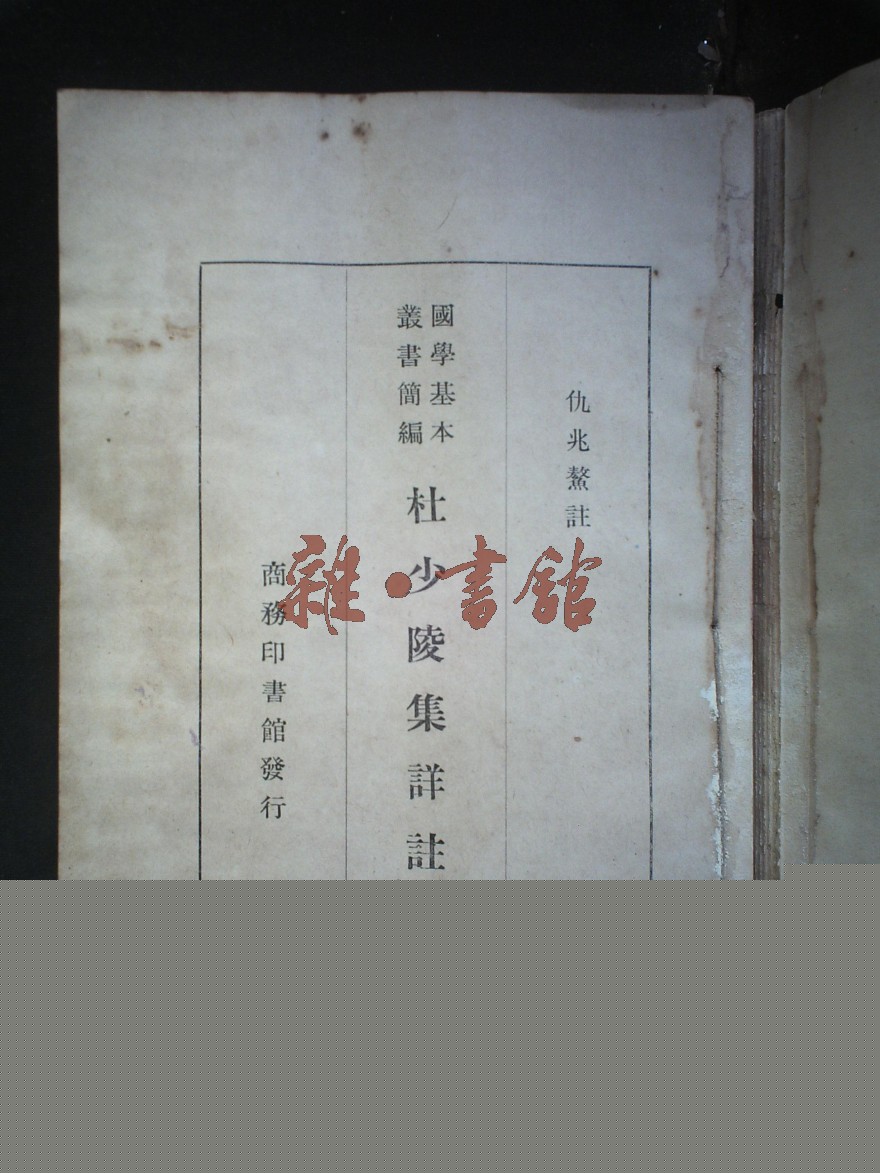 仇兆鰲註
國學基本
叢書簡編
杜少陵集詳註
商務印書館發行
雜·書館